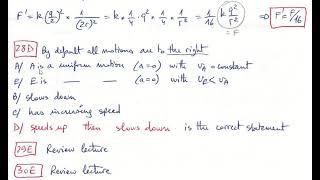 F' = k (q/2)² × 1/(2r)² = k × 1/4 · q² × 1/4 × 1/r² = 1/16 k q²/r² ⇒ F' = F/16
= F
28D By default all motions are to the right
A/ A is a uniform motion (a=0) with v_A = constant
E/ E is — — (a=0) — v_E < v_A
B/ slows down
C/ has increasing speed
D/ speeds up then slows down is the correct statement
29E Review lecture
30E Review lecture